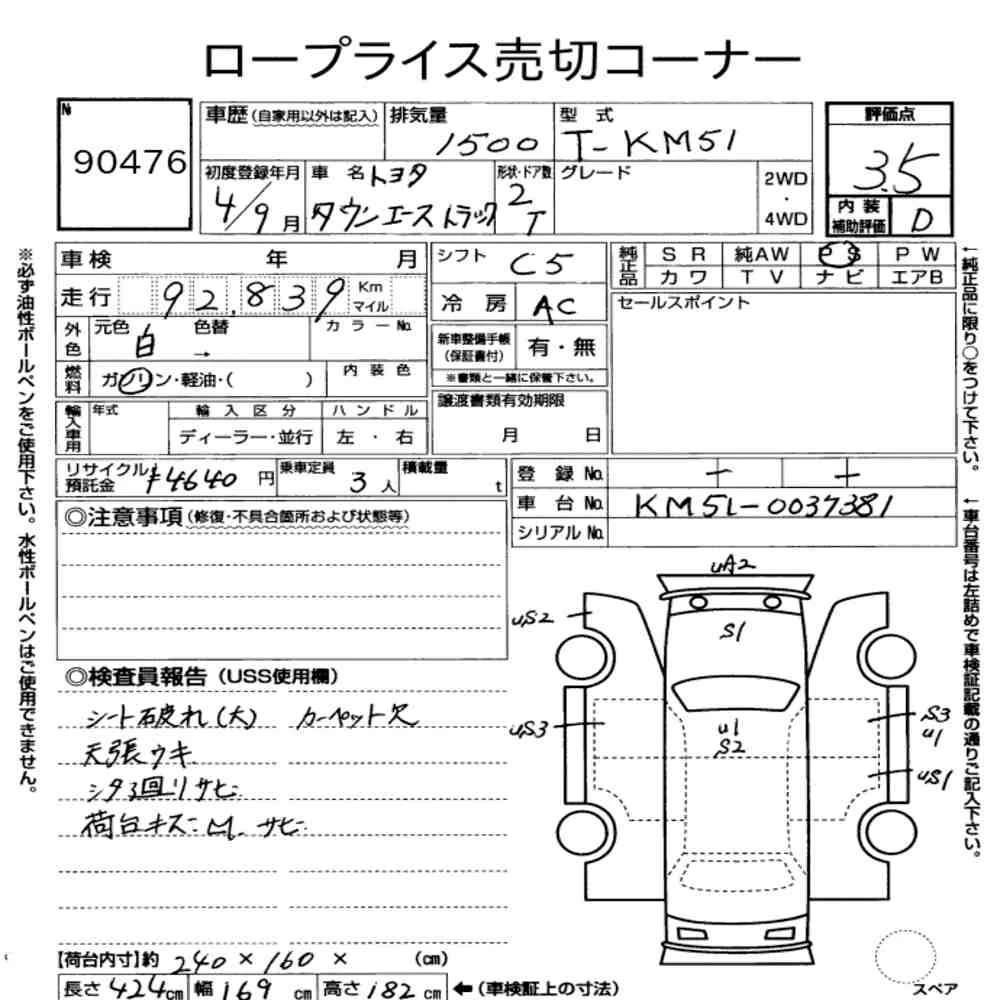 ロープライス売切コーナー
№ 90476
車歴(自家用以外は記入) 排気量 1500 型式 T-KM51
初度登録年月 4/9月 車名 トヨタ タウンエーストラック 形状・ドア数 2 T グレード 2WD・4WD
評価点 3.5
内装補助評価 D
車検 年 月 シフト C5
純正品 SR 純AW PS PW
カワ TV ナビ エアB
走行 92,839 Km マイル 冷房 AC
セールスポイント
外色 元色 白 色替 → カラーNo.
新車整備手帳(保証書付) 有・無
※書類と一緒に保管下さい。
燃料 ガソリン・軽油・( ) 内装色
輸入車用 年式 輸入区分 ハンドル
ディーラー・並行 左・右
譲渡書類有効期限
月 日
リサイクル預託金 ¥4640円 乗車定員 3人 積載量 t
登録No.
車台No. KM51-0037381
シリアルNo.
◎注意事項(修復・不具合箇所および状態等)
◎検査員報告(USS使用欄)
シート破れ(大) カーペット欠
天張ウキ
シタ3回リサビ
荷台キズ凹サビ
uA2
uS2
S1
uS3
u1
S2
S3
u1
uS1
スペア
【荷台内寸】約 240×160× (cm)
長さ424cm 幅169cm 高さ182cm ←(車検証上の寸法)
※必ず油性ボールペンをご使用下さい。水性ボールペンはご使用できません。
←純正品に限り○をつけて下さい。
←車台番号は左詰めで車検証記載の通りご記入下さい。